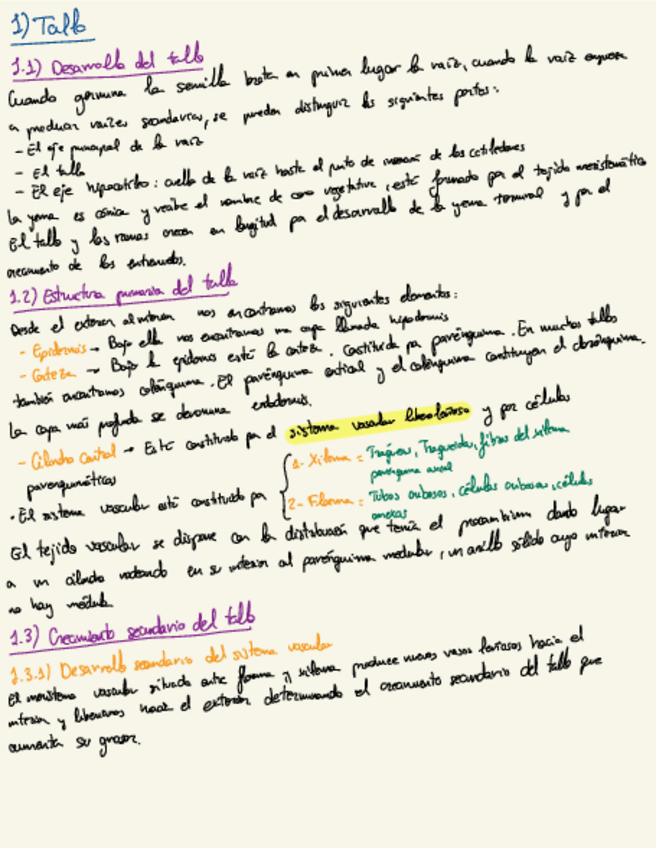 1) Tallo
1.1) Desarrollo del tallo
Cuando germina la semilla brota en primer lugar la raíz, cuando la raíz empieza
a producir raíces secundarias, se pueden distinguir las siguientes partes:
- El eje principal de la raíz
- El tallo
- El eje hipocotilo: cuello de la raíz hasta el punto de inserción de los cotiledones
La yema es cónica y recibe el nombre de cono vegetativo, está formado por el tejido meristemático
El tallo y las ramas crecen en longitud por el desarrollo de la yema terminal y por el
crecimiento de los entrenudos.
1.2) Estructura primaria del tallo
Desde el exterior al interior nos encontramos los siguientes elementos:
- Epidermis → Bajo ella nos encontramos una capa llamada hipodermis
- Corteza → Bajo la epidermis está la corteza. Constituida por parénquima. En muchos tallos
también encontramos colénquima. El parénquima cortical y el colénquima constituyen el
La capa más profunda se denomina endodermis.
- Cilindro Central → Está constituido por el sistema vascular liberoleñoso y por células
parenquimáticas
· El sistema vascular está constituido por
1- Xilema = Tráqueas, Traqueidas, fibras del xilema
parénquima axial
2- Floema = Tubos cribosos, células cribosas, células
anexas
El tejido vascular se dispone con la distribución que tenía el procambium dando lugar
a un cilindro rodeando en su interior al parénquima medular, un anillo sólido cuyo interior
no hay médula
1.3) Crecimiento secundario del tallo
1.3.1) Desarrollo secundario del sistema vascular
El meristemo vascular situado entre floema y xilema produce nuevos vasos leñosos hacia el
interior y liberianos hacia el exterior determinando el crecimiento secundario del tallo que
aumenta su grosor.